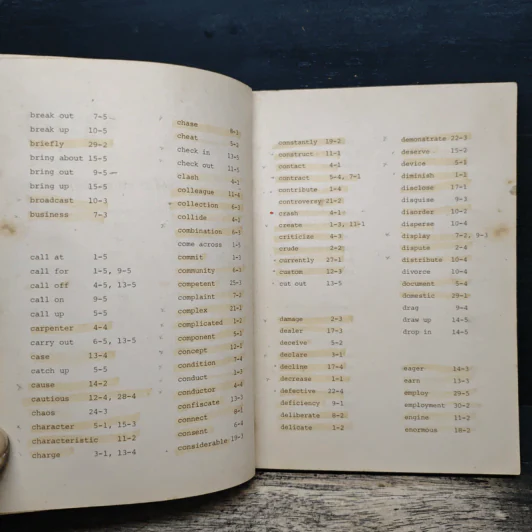 break out 7-5
break up 10-5
briefly 29-2
bring about 15-5
bring out 9-5
bring up 15-5
broadcast 10-3
business 7-3
call at 1-5
call for 1-5, 9-5
call off 4-5, 13-5
call on 9-5
call up 5-5
carpenter 4-4
carry out 6-5, 13-5
case 13-4
catch up 5-5
cause 14-2
cautious 12-4, 28-4
chaos 24-3
character 5-1, 15-3
characteristic 11-2
charge 3-1, 13-4
chase 8-3
cheat 5-2
check in 13-5
check out 11-5
clash 4-1
colleague 11-4
collection 6-1
collide 4-2
combination 6-1
come across 1-5
commit 1-1
community 6-3
competent 25-3
complaint 7-2
complex 21-2
complicated 1-2
component 5-1
concept 12-2
condition 7-4
conduct 2-3
conductor 4-4
confiscate 13-3
connect 6-1
consent 6-4
considerable 19-3
constantly 19-2
construct 11-1
contact 4-1
contract 5-4, 7-1
contribute 1-4
controversy 21-2
crash 4-1
create 1-3, 11-1
criticize 4-3
crude 2-2
currently 27-1
custom 12-3
cut out 13-5
damage 2-3
dealer 17-3
deceive 5-2
declare 3-1
decline 17-4
decrease 1-1
defective 22-4
deficiency 9-1
deliberate 8-2
delicate 1-2
demonstrate 22-3
deserve 15-2
device 5-1
diminish 1-1
disclose 17-1
disguise 9-3
disorder 10-2
disperse 10-4
display 7-2, 9-3
dispute 2-4
distribute 10-4
divorce 10-4
document 5-4
domestic 29-1
drag 9-4
draw up 14-5
drop in 14-5
eager 14-3
earn 13-3
employ 29-5
employment 30-2
engine 11-2
enormous 18-2